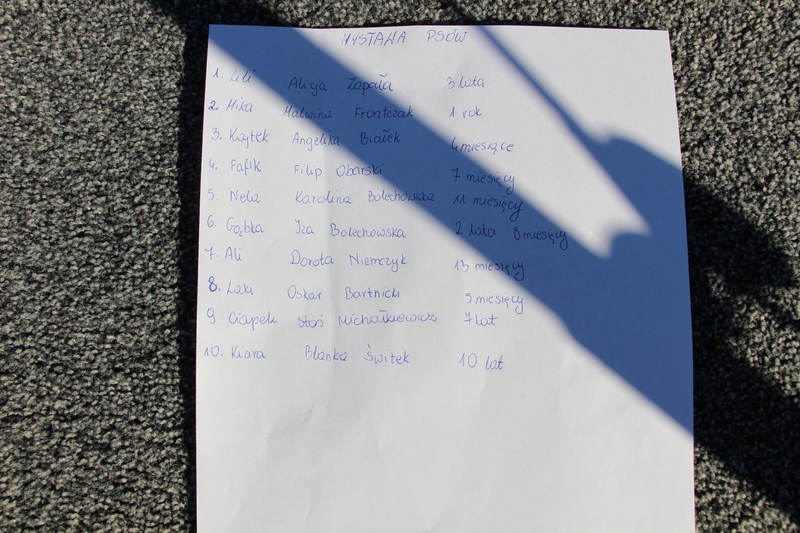 WYSTAWA PSÓW
1. Lili Alicja Zapała 3 lata
2. Mika Malwina Frontczak 1 rok
3. Kajtek Angelika Białek 4 miesiące
4. Fafik Filip Obarski 7 miesięcy
5. Nela Karolina Bolechowska 11 miesięcy
6. Gąbka Iza Bolechowska 2 lata 8 miesięcy
7. Ali Dorota Niemczyk 13 miesięcy
8. Laki Oskar Bartnicki 5 miesięcy
9 Ciapek Staś Michałkiewicz 7 lat
10. Kiara Blanka Świtek 10 lat